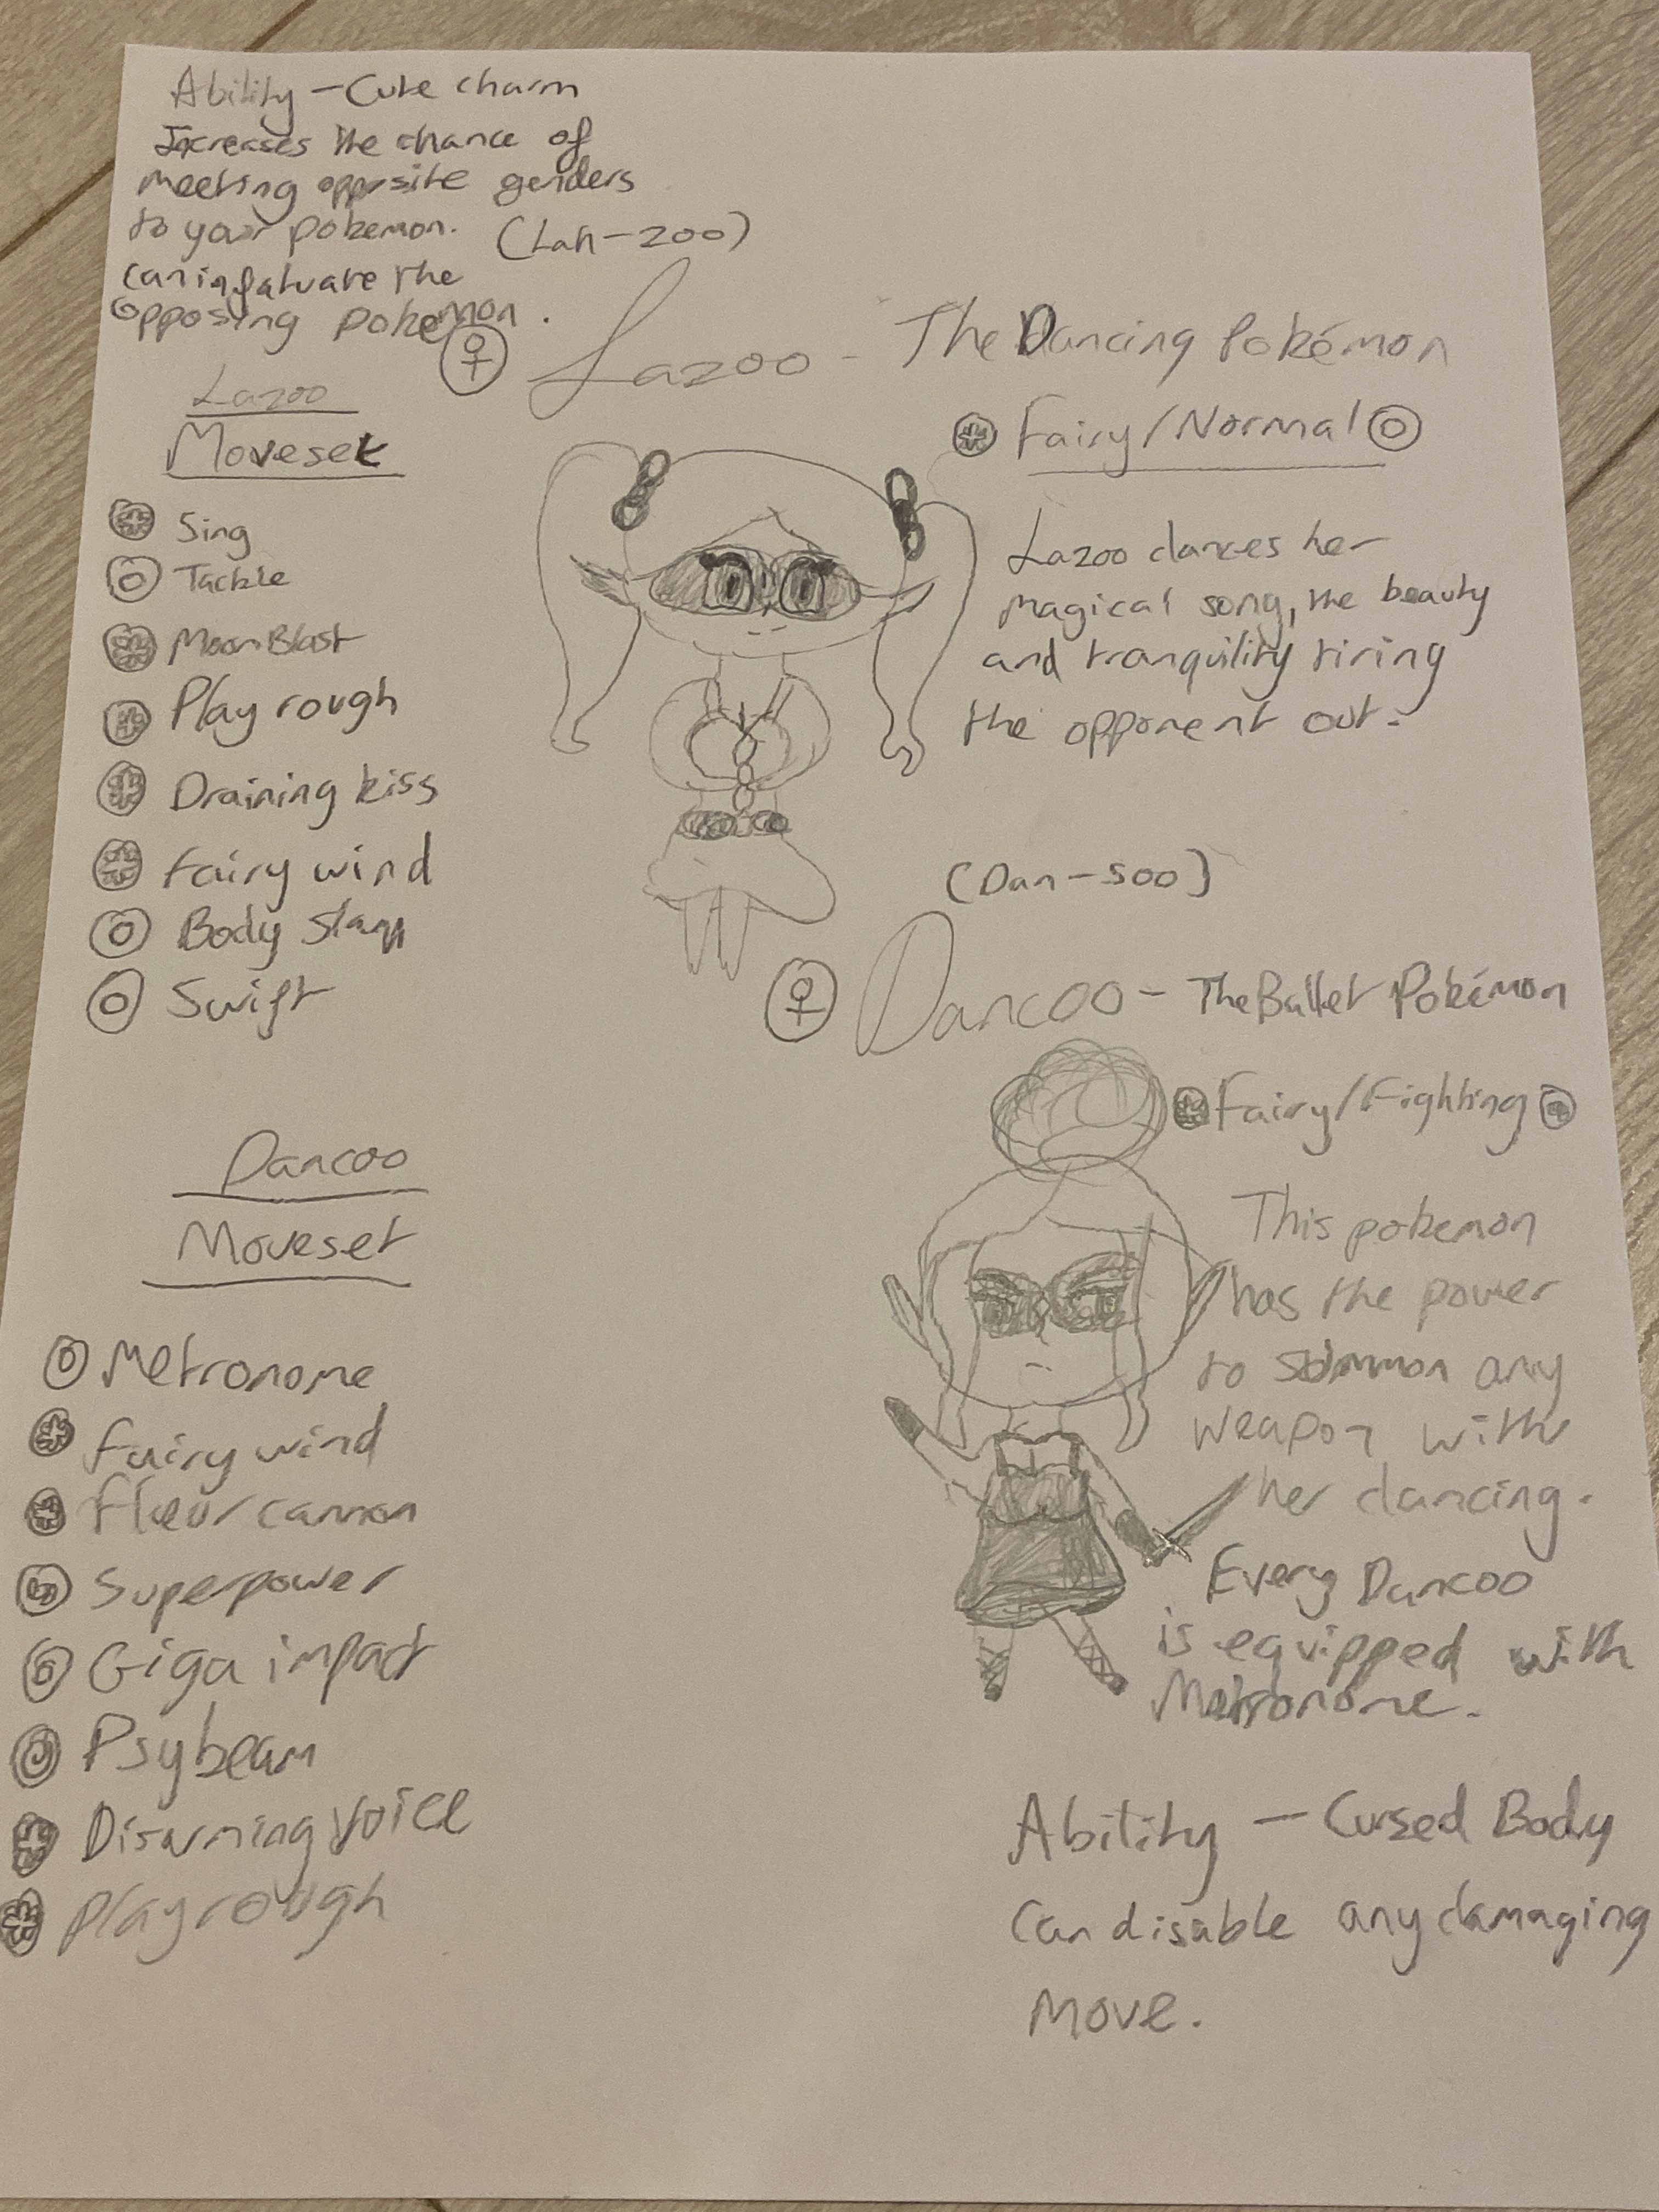 Ability - Cute charm
Increases the chance of
meeting opposite genders
to your pokemon.
can infatuate the
opposing pokemon.
(Lah-zoo)
Lazoo - The Dancing Pokémon
Fairy/Normal
Lazoo dances her
magical song, the beauty
and tranquility tiring
the opponent out.
Lazoo
Moveset
Sing
Tackle
MoonBlast
Play rough
Draining kiss
Fairy wind
Body slam
Swift
(Dan-soo)
Dancoo - The Ballet Pokémon
Fairy/Fighting
This pokemon
has the power
to summon any
weapon with
her dancing.
Every Dancoo
is equipped with
Metronome.
Ability - Cursed Body
Can disable any damaging
move.
Dancoo
Moveset
Metronome
Fairy wind
Fleur cannon
Superpower
Giga impact
Psybeam
Disarming Voice
Play rough